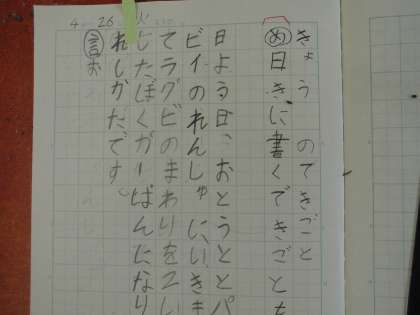 4 26 火
きょうのできごと
め 日きに書くできごとも
日よう日、おとうととパ
ビイのれんしゅに、いきま
てラグビのまわりを2し
したぼくが一ばんになり
れしかたです。
言お